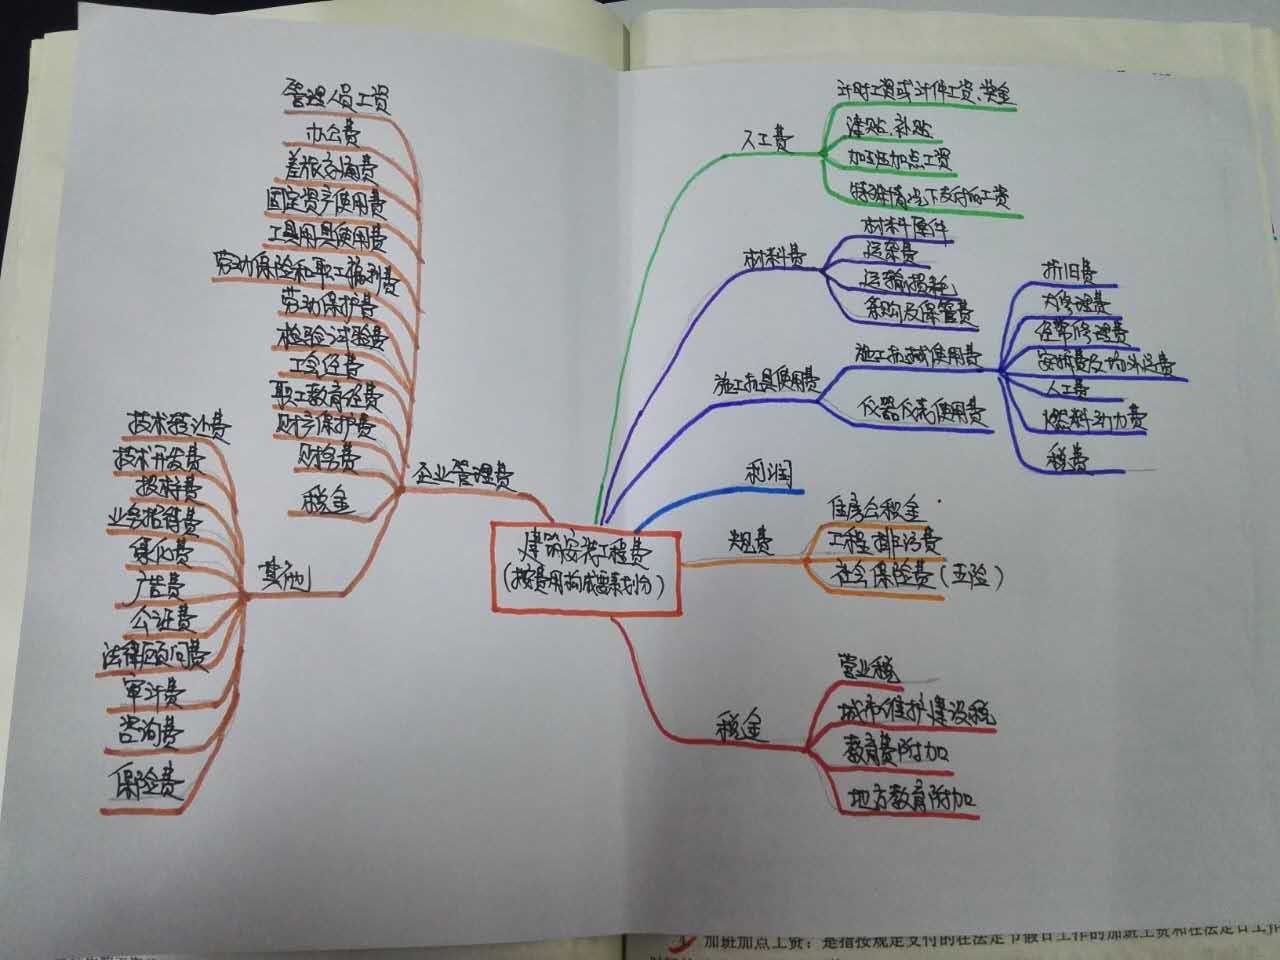 建筑安装工程费
(按费用构成要素划分)
人工费
计时工资或计件工资、奖金
津贴、补贴
加班加点工资
特殊情况下支付的工资
材料费
材料原件
运杂费
运输损耗
采购及保管费
施工机具使用费
施工机械使用费
折旧费
大修理费
经常修理费
安拆费及场外运费
人工费
燃料动力费
税费
仪器仪表使用费
利润
规费
住房公积金
工程排污费
社会保险费(五险)
税金
营业税
城市维护建设税
教育费附加
地方教育附加
企业管理费
管理人员工资
办公费
差旅交通费
固定资产使用费
工具用具使用费
劳动保险和职工福利费
劳动保护费
检验试验费
工会经费
职工教育经费
财产保护费
财务费
税金
其他
技术转让费
技术开发费
投标费
业务招待费
绿化费
广告费
公证费
法律顾问费
审计费
咨询费
保险费
加班加点工资:是指按规定支付的在法定节假日工作的加班工资和在法定日工作